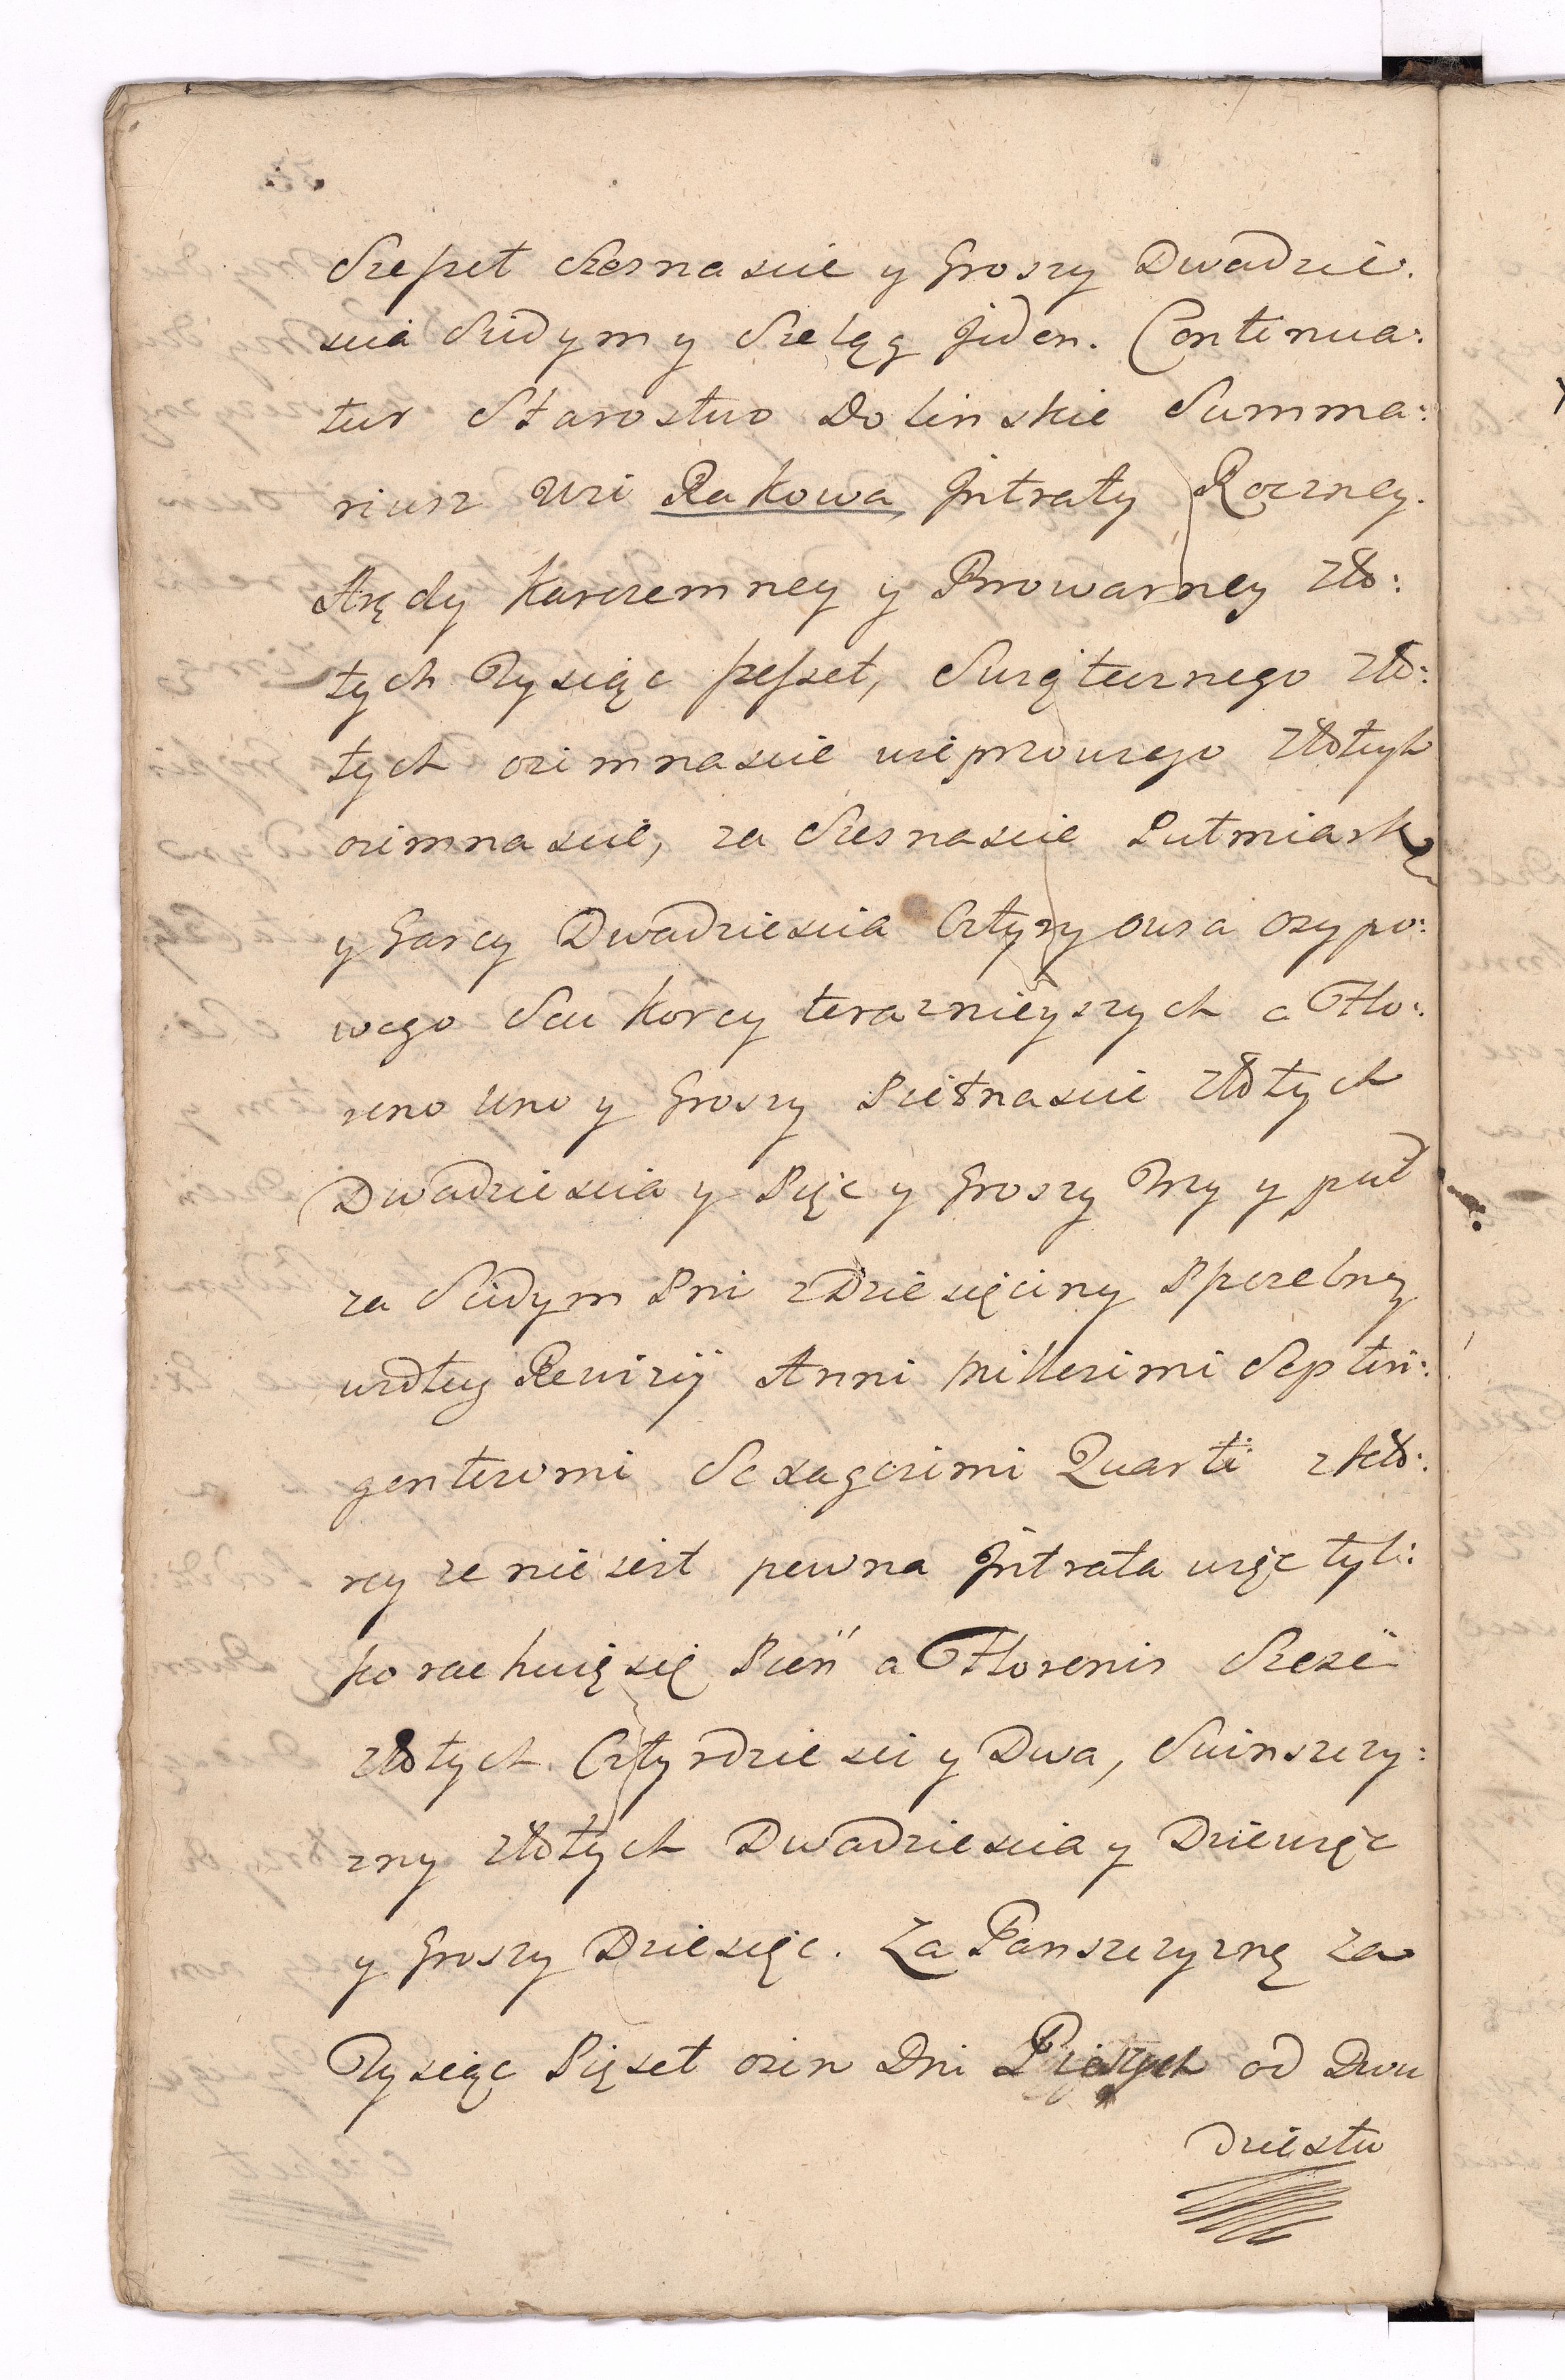 Szesset szesnascie y Groszy Dwadzie:
scia Siedym y Szeląg Jeden. Continua:
tur Starostwo Dolinskie Summa:
riusz Wsi Rakowa Jntraty Roczney.
Arędy Karczemney y Browarney zło:
tych Tysiąc sesset, Surgaturnego zło:
tych osimnascie wieprzowego złotych
osimnascie, za szesnascie Putmiark
y Garcy Dwadziescia Cztyry owsa osypo:
wego seu korcy teraznieyszych a Flo:
reno uno y Groszy Pietnascie złotych
Dwadziescia y Pięc y Groszy Trzy y puł
za Siedym Pni z Dziesięciny Pszczelney
według Rewizyi Anni Millesimi Septin:
gentesimi Sexagesimi Quarti z któ:
rey ze nie iest pewna Jntrata więc tyle:
ko rachuię się Pień a Florenis Szesc
złotych Cztyrdziesci y Dwa, Swinszczy:
zny złotych Dwadziescia y Dziewięc
y Groszy Dziesięc. Za Panszczyznę za
Tysiąc Pięset osien Dni Pieszych od Dwu
dziestu